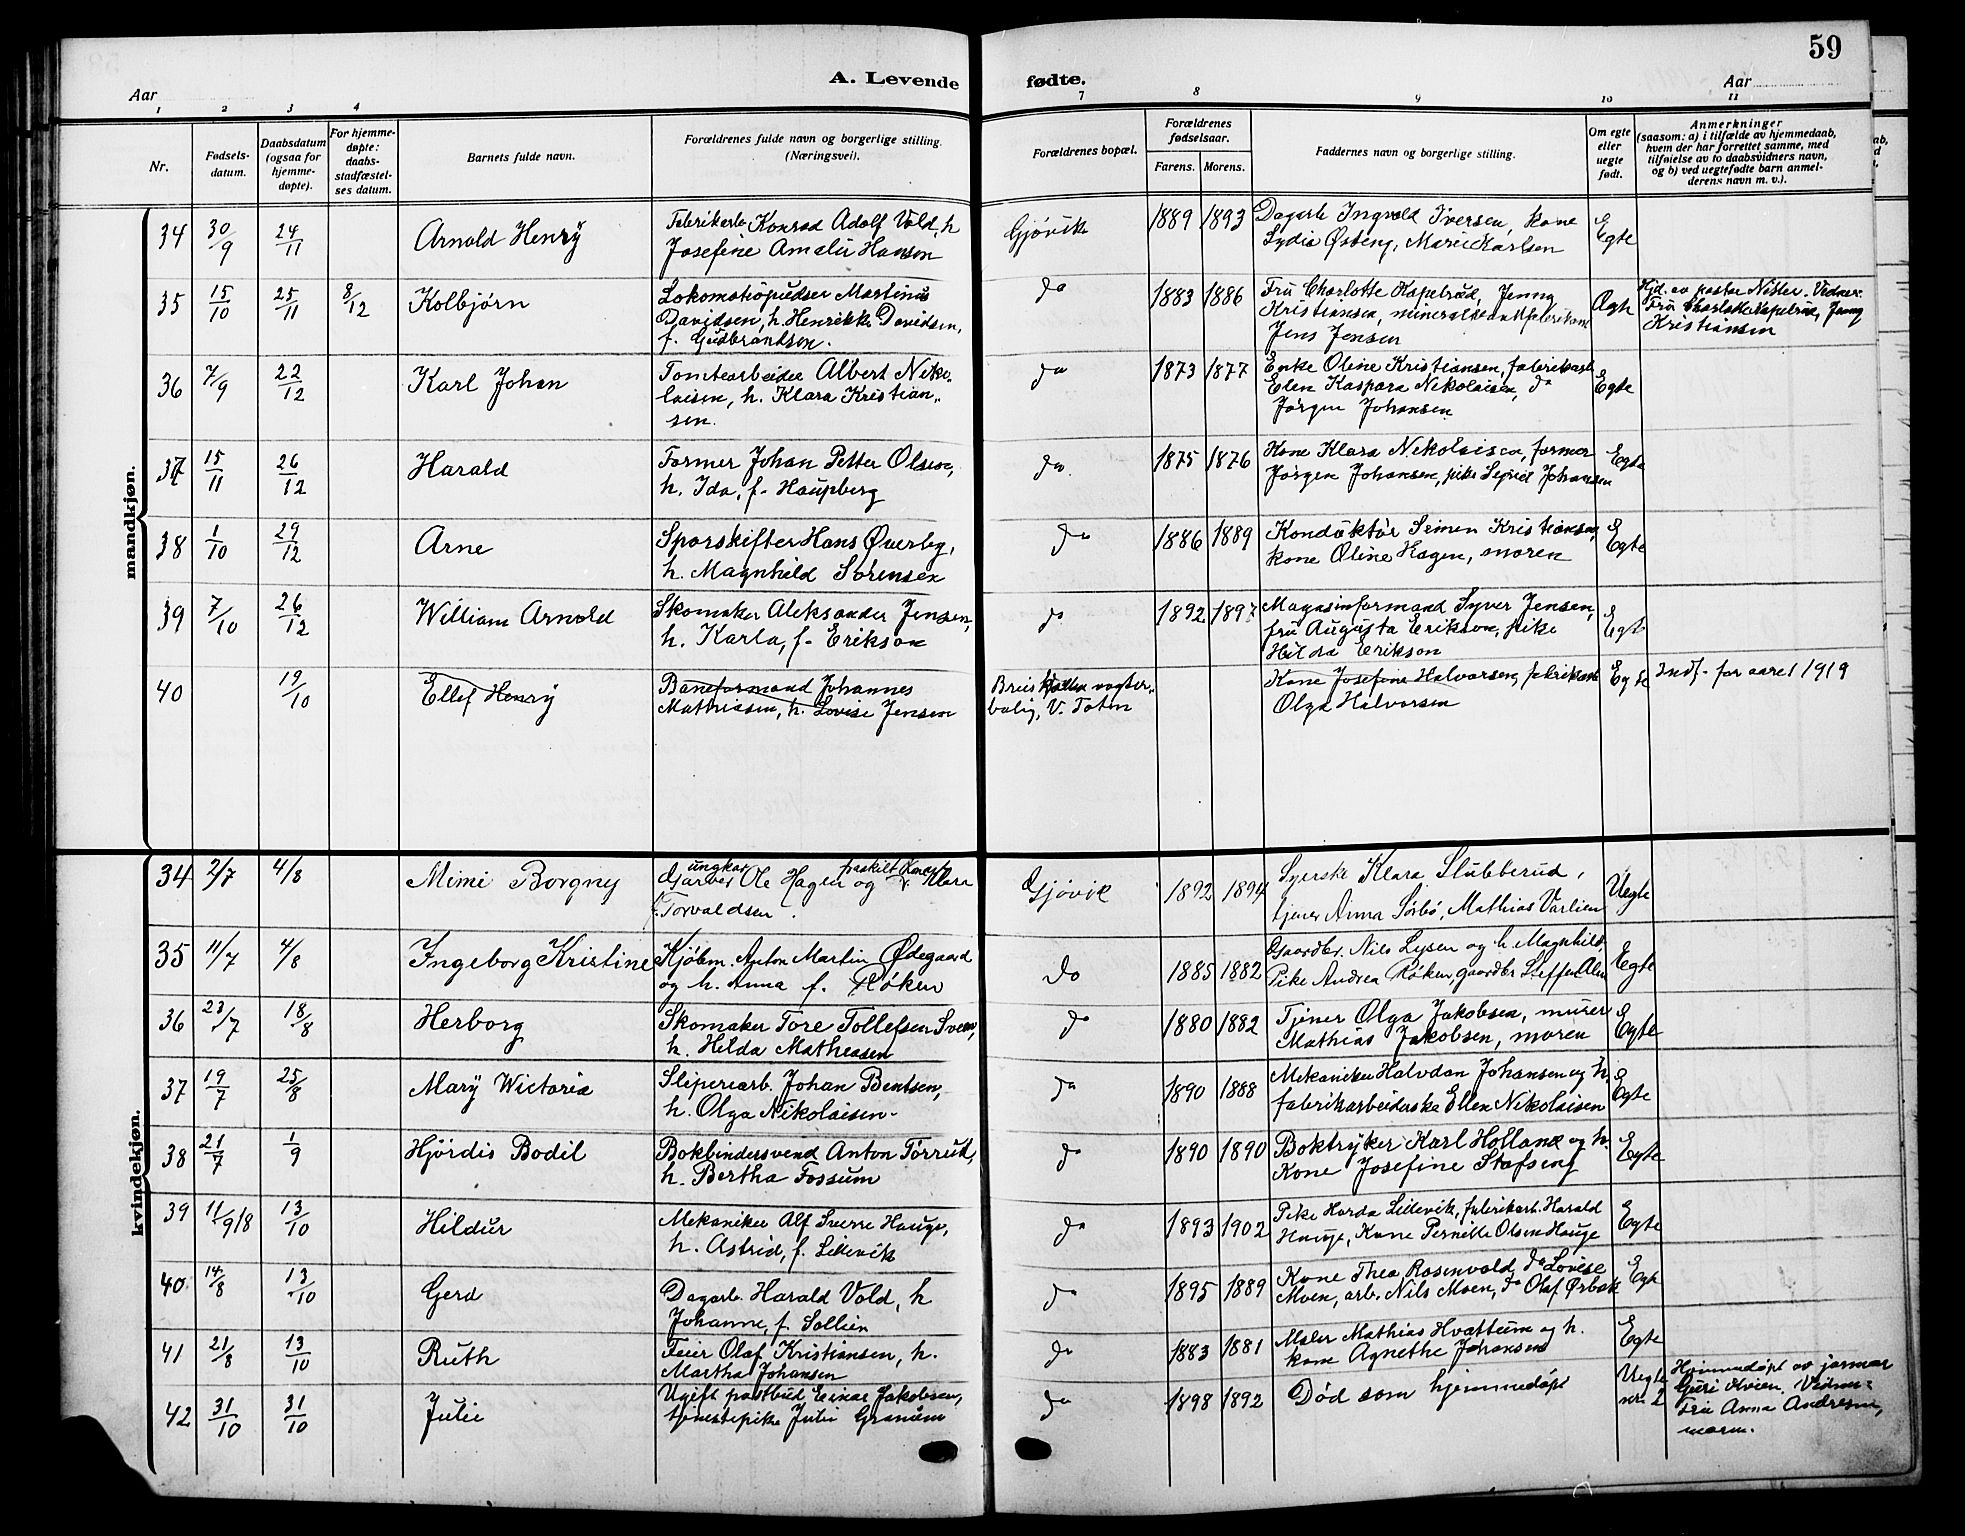 59
A. Levende fødte.
Aar Aar
1 2 3 4 7 8 9 10 11
Nr.
Fødsels-
datum.
Daabsdatum
(ogsaa for
hjemme-
døpte).
For hjemme-
døpte:
daabs-
stadfæstel-
ses datum.
Barnets fulde navn.
Forældrenes fulde navn og borgerlige stilling.
(Næringsvei).
Forældrenes bopæl.
Forældrenes
fødselsaar.
Farens. Morens.
Faddernes navn og borgerlige stilling.
Om egte
eller
uegte
født.
Anmerkninger
(saasom: a) i tilfælde av hjemmedaab,
hvem der har forrettet samme, med
tilføielse av to daabsvidners navn,
og b) ved uegtefødte barn anmel-
derens navn m. v.).
mandkjøn.
34 30/9 24/11 Arnold Henry
Fabrikarb. Konrad Adolf Vold, h
Josefine Amalie Hansen
Gjøvik 1889 1893
Dagarb Ingvald Iversen, kone
Lydia Østeng, Marie Karlsen
Egte
35 15/10 25/11 8/12 Kolbjørn
Lokomotivpudser Martinus
Davidsen, h. Henrikke Davidsen,
f. Gudbrandsen.
do 1883 1886
Fru Charlotte Kapelrud, Jenny
Kristiansen, mineralvandfabrikant
Jens Jensen
Ægte
Hjd. av pastor Nitter. Vidner:
Fru Charlotte Kapelrud, Jenny
Kristiansen
36 7/9 22/12 Karl Johan
Tomtearbeider Albert Niko-
laisen, h. Klara Kristian-
sen.
do 1873 1877
Enke Oline Kristiansen, fabrikarb
Elen Kaspara Nikolaisen, do
Jørgen Johansen
Egte
37 15/11 26/12 Harald
Former Johan Petter Olsen,
h. Ida, f. Haugberg
do 1875 1876
Kone Klara Nikolaisen, former
Jørgen Johansen, pike Sigrid Johansen
Egte
38 1/10 29/12 Arne
Sporskifter Hans Øverby,
h. Magnhild Sørensen
do 1886 1889
Konduktør Simen Kristiansen,
kone Oline Hagen, moren
Egte
39 7/10 26/12 William Arnold
Skomaker Aleksander Jensen,
h. Karla, f. Erikson
do 1892 1897
Magasinformand Syver Jensen,
fru Augusta Erikson, pike
Hilda Erikson
Egte
40 19/10 Ellef Henry
Baneformand Johannes
Mathiassen, h. Lovise Jensen
vogter-
bolig, V. Toten
Kone Josefine Halvorsen, fabrikarb
Olga Halvorsen
Egte Indf. for aaret 1919
kvindekjøn.
34 2/7 4/8 Mimi Borgny
ungkar fraskilt Kone
Garver Ole Hagen og Klara
f. Torvaldsen.
Gjøvik 1892 1894
Syerske Klara Slubberud,
tjener Anna Sørbø, Mathias Varlien
Uegte
35 11/7 4/8 Ingeborg Kristine
Kjøbm. Anton Martin Ødegaard
og h. Anna f. Røken
do 1885 1882
Gaardbr. Nils Lysen og h. Magnhild,
Pike Andrea Røken, gaardbr Steffen Alm
Egte
36 23/7 18/8 Herborg
Skomaker Tore Tollefsen Sveen,
h. Hilda Mathiasen
do 1880 1882
Tjener Olga Jakobsen, murer
Mathias Jakobsen, moren
Egte
37 19/7 25/8 Mary Wictoria
Sliperiarb. Johan Bentsen,
h. Olga Nikolaisen.
do 1890 1888
Mekaniker Halvdan Johansen og h.
fabrikarbeiderske Ellen Nikolaisen
Egte
38 21/7 1/9 Hjørdis Bodil
Bokbindersvend Anton Tørrud,
h. Bertha Fossum
do 1890 1890
Boktrykker Karl Holland og h.
Kone Josefine Stafseng
Egte
39 11/9 18 13/10 Hildur
Mekaniker Alf Sverre Hauge,
h. Astrid, f. Lillevik
do 1893 1902
Pike Harda Lillevik, fabrikarb. Harald
Hauge, Kone Pernille Olsen Hauge
Egte
40 14/8 13/10 Gerd
Dagarb. Harald Vold, h
Johanne, f. Sollien
do 1895 1889
Kone Thea Rosenvold, do Lovise
Moen, arb. Nils Moen, do Olaf Ørbæk
Egte
41 21/8 13/10 Ruth
Feier Olaf Kristiansen, h.
Martha Johansen
do 1883 1881
Maler Mathias Hvattum og h.
kone Agnethe Johansen
Egte
42 31/10 31/10 Julie
Ugift postbud Einar Jakobsen,
tjenestepike Julie Granum
do 1898 1892
Død som hjemmedøpt
Uegte
nr. 2
Hjemmedøpt av jormor
Guri Kvien. Vidner:
Fru Anna Andresen,
moren.